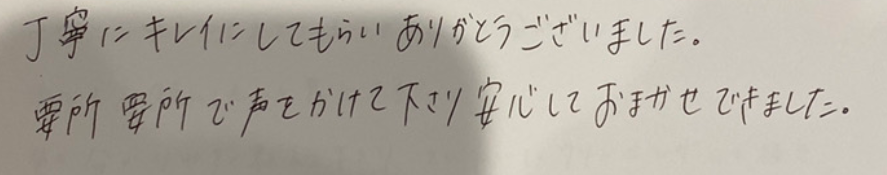 丁寧にキレイにしてもらいありがとうございました。
要所要所で声をかけて下さり安心しておまかせできました。